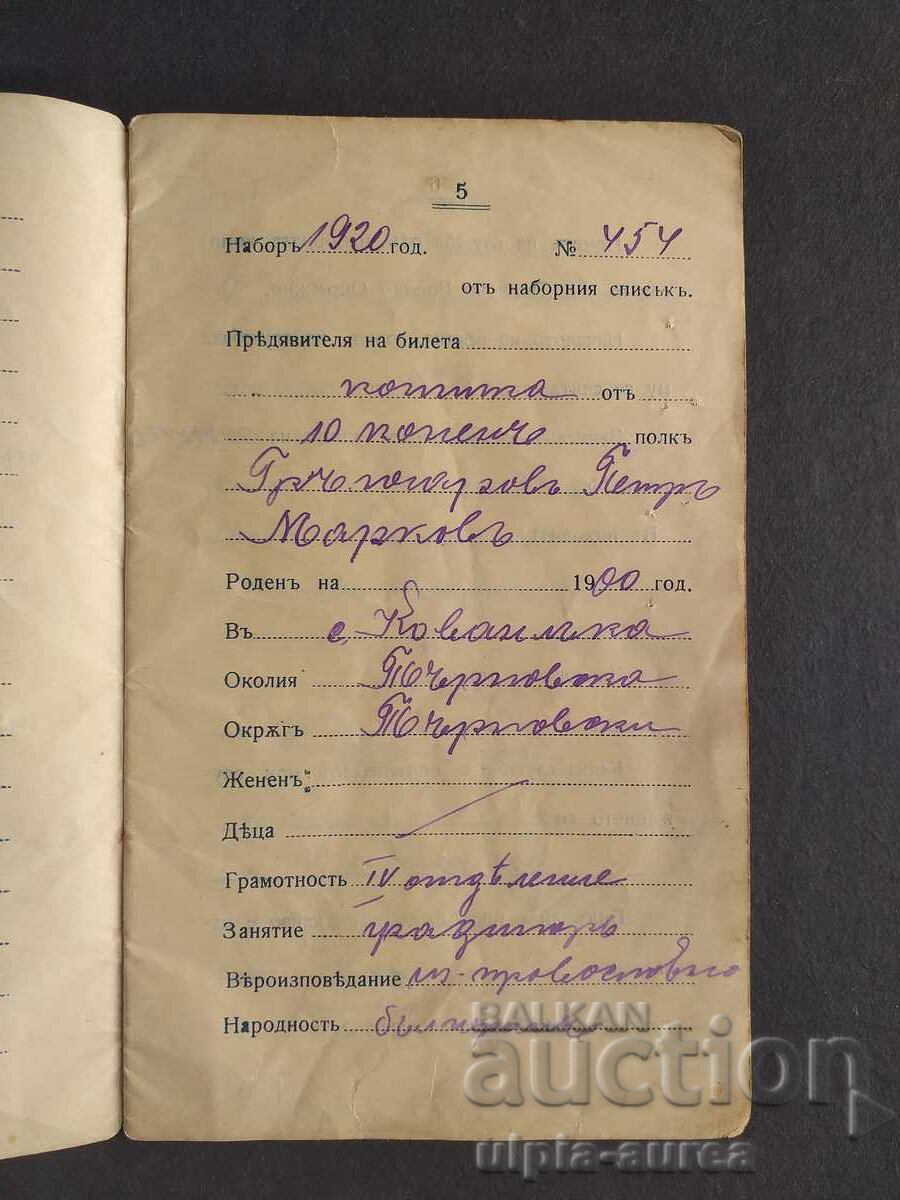 5
Наборъ 1920 год. № 454
отъ наборния списъкъ.
Прѣдявителя на билета
отъ
10 конень полкъ
Петръ
Марковъ
Роденъ на 1900 год.
Въ с. Ковачъка
Околия Търновска
Окрѫгъ Търновски
Жененъ:
Дѣца
Грамотность IV отдѣление
Занятие градинарь
Вѣроизповѣдание из-православно
Народность българинъ
BALKAN
auction
ulpia-aurea